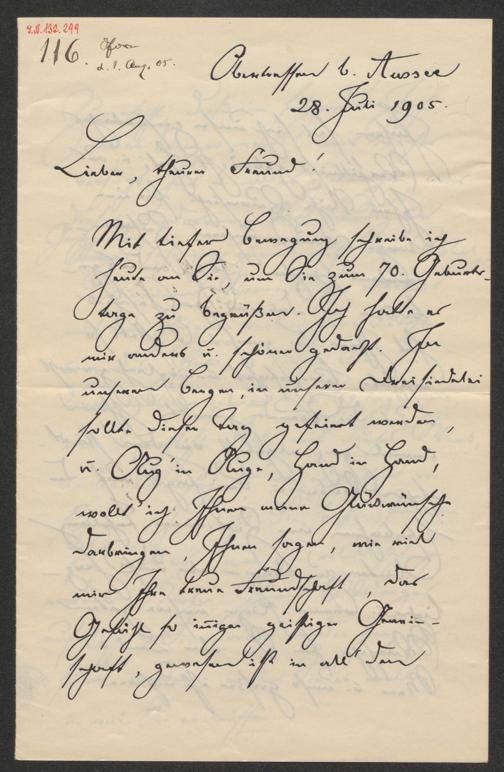 I.N. 132.299
116.
d. 1. Aug. 05.
Obertressen b. Aussee
28. Juli 1905.
Lieber, theurer Freund!
Mit tiefer Bewegung schreibe ich
heute an Sie, um Sie zum 70. Geburts-
tage zu begrüßen. Ich hatte es
mir anders u. schöner gedacht. In
unseren Bergen, in unserer Dreisiedelei
sollte dieser Tag gefeiert werden,
u. Aug' in Auge, Hand in Hand,
wollt' ich Ihnen meine Glückwünsche
darbringen, Ihnen sagen, wie viel
mir Ihre treue Freundschaft, das
Gefühl so inniger geistiger Gemein-
schaft, gewesen ist in all' den